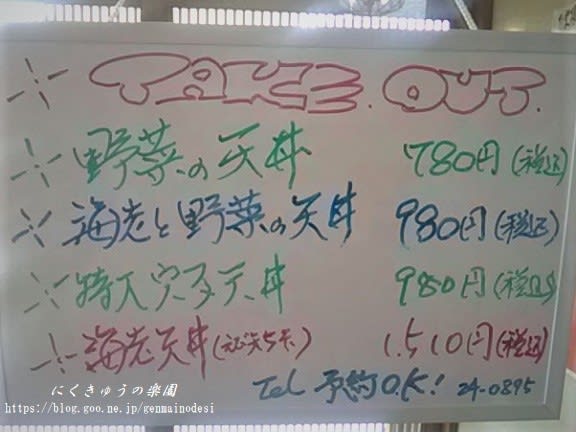 TAKE.OUT.
野菜の天丼 780円(税込)
海老と野菜の天丼 980円(税込)
特大穴子天丼 980円(税込)
海老天丼(えび天5本) 1.510円(税込)
Tel 予約O.K! 24-0895
にくきゅうの楽園
https://blog.goo.ne.jp/genmainodesi